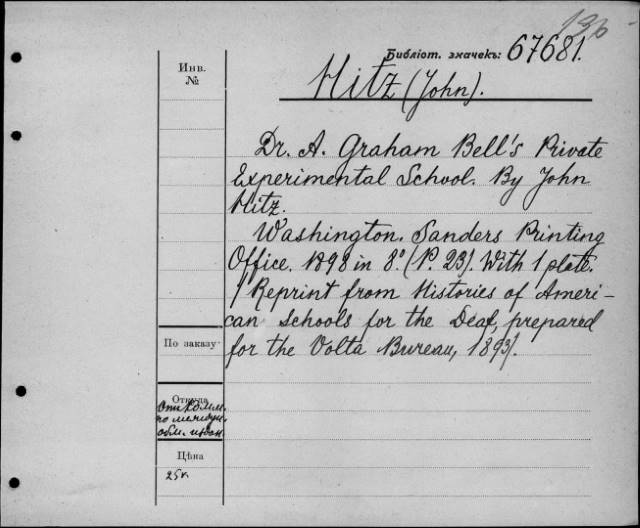 136
Библiот. значекъ: 67681.
Инв.
№
Hitz (John).
Dr. A. Graham Bell's Private
Experimental School. By John
Hitz.
Washington. Sanders Printing
Office. 1898 in 8° (P. 23). With 1 plate.
/ Reprint from Histories of Ameri-
can Schools for the Deaf, prepared
for the Volta Bureau, 1893/.
По заказу
Откуда
Отъ Комм.
по междун.
обм. издан.
Цѣна
25к